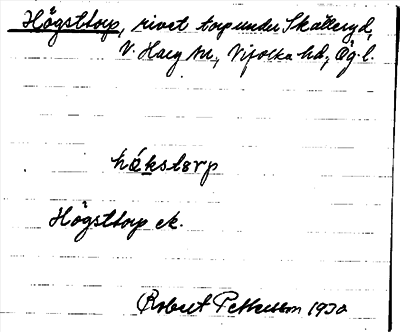 Högsttorp, rivet torp under Skälleryd,
V. Harg sn, Vifolka hd, Ög. l.
hákstɔrp
Högsttorp ek.
Robert Pettersson 1930